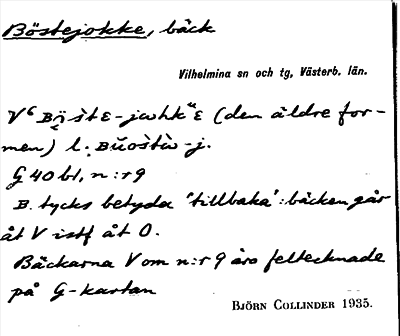 Böstejokke, bäck
Vilhelmina sn och tg, Västerb. län.
(den äldre for-
men) l.
G 40 bl, n:r 9
B. tycks betyda 'tillbaka': bäcken går
åt V istf åt O.
Bäckarna V om n:r 9 äro feltecknade
på G-kartan
BJÖRN COLLINDER 1935.